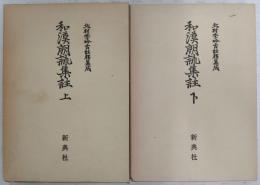 北村季吟古註釈集成
和漢朗詠集註 上
新典社
北村季吟古註釈集成
和漢朗詠集註 下
新典社